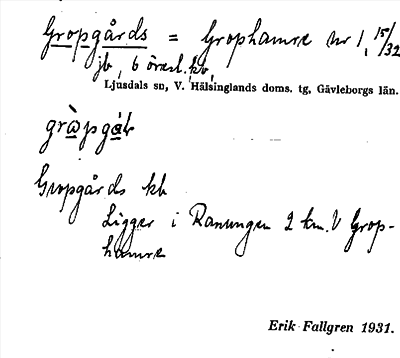 Gropgårds = Grophamre nr 1, 15/32
jb, 6 öresl. kb,
Ljusdals sn, V. Hälsinglands doms. tg, Gävleborgs län.
Gropgårds kb
Ligger i Ranungen 2 km. V Grop-
hamre
Erik Fallgren 1931.